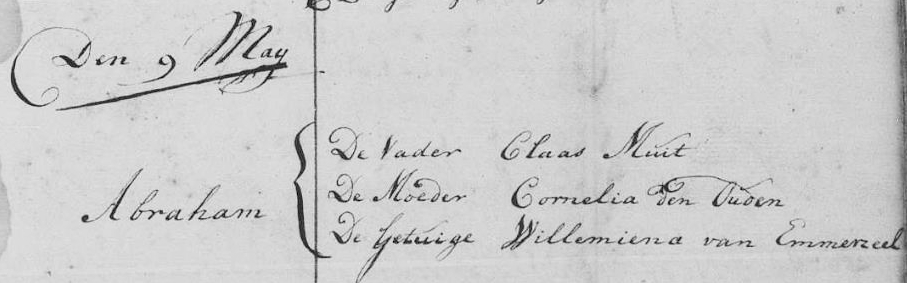 Den 9 May
De Vader Claas Muit
Abraham De Moeder Cornelia den Ouden
De Getuige Willemiena van Emmerzeel